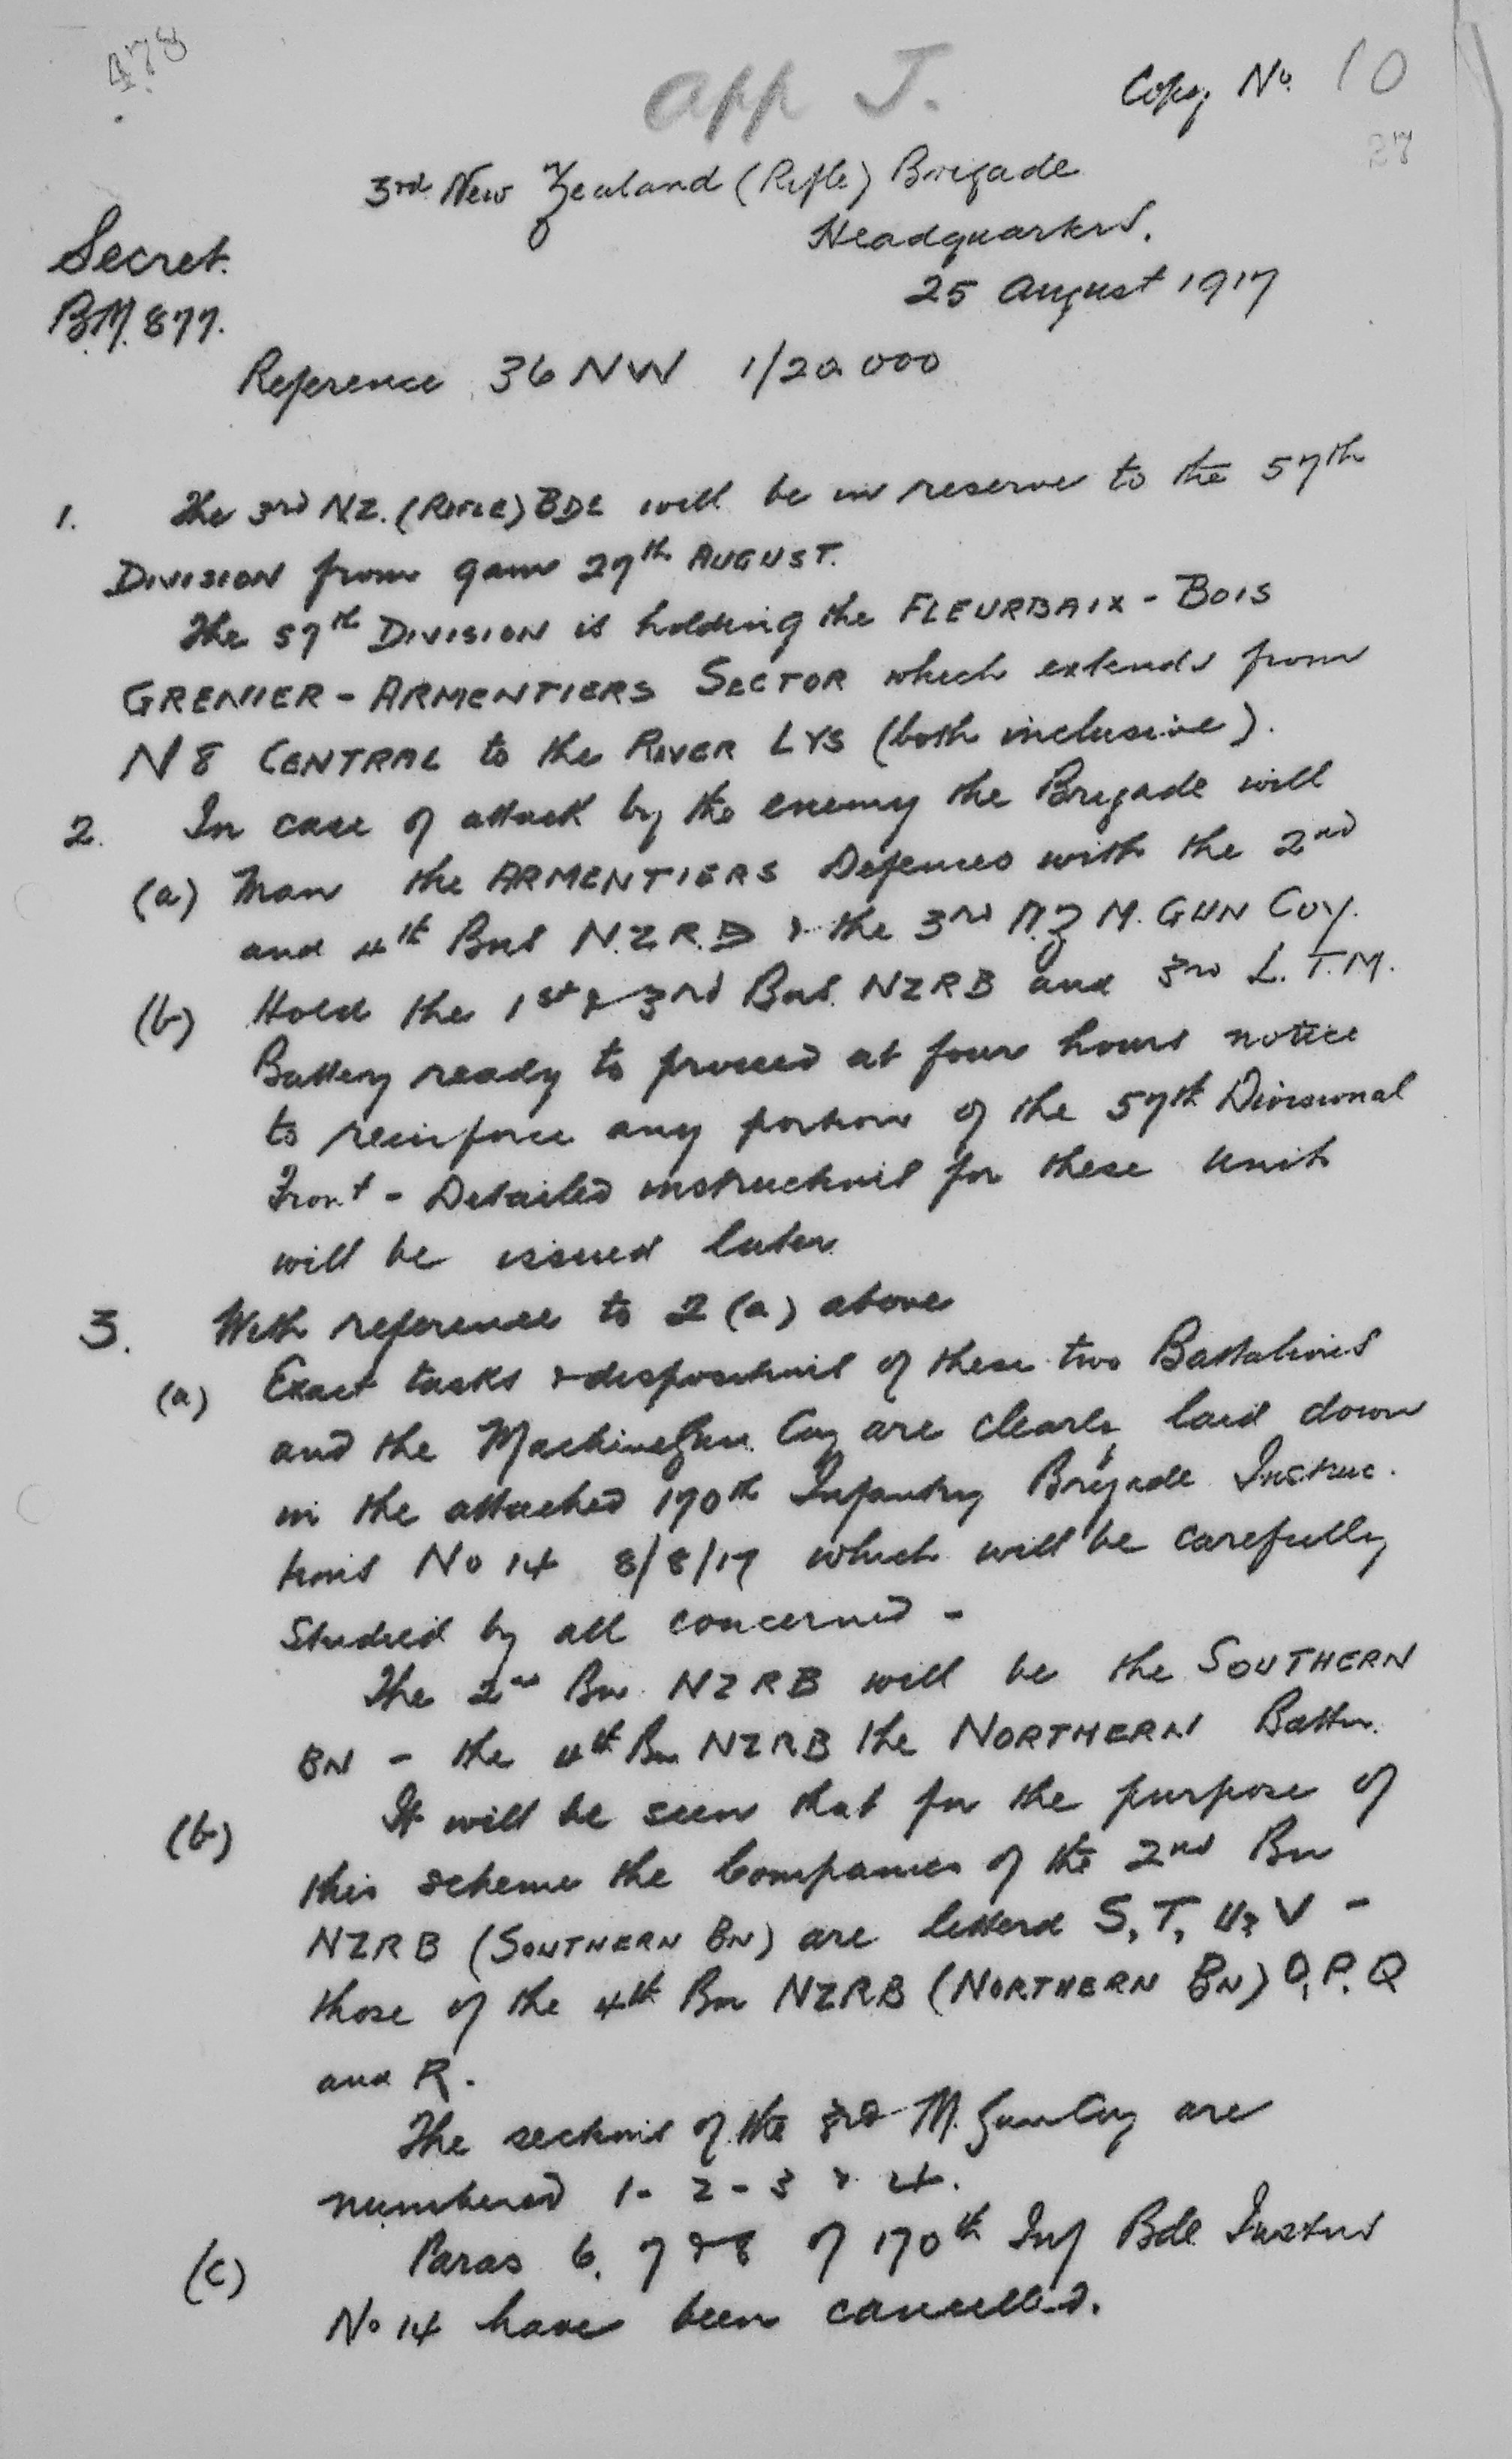 478
App J.
Copy No. 10
27
3rd New Zealand (Rifle) Brigade
Headquarters.
Secret.
25 August 1917
B.M. 877.
Reference 36 NW 1/20 000
1. The 3rd N.Z. (RIFLE) BDE will be in reserve to the 57th
DIVISION from 9am 27th AUGUST.
The 57th DIVISION is holding the FLEURBAIX - BOIS
GRENIER - ARMENTIERS SECTOR which extends from
N 8 CENTRAL to the RIVER LYS (both inclusive).
2. In case of attack by the enemy the Brigade will
(a) Man the ARMENTIERS Defences with the 2nd
and 4th Bns N.Z.R.B & the 3rd N.Z M. GUN COY.
(b) Hold the 1st & 3rd Bns. NZRB and 3rd L.T.M.
Battery ready to proceed at four hours notice
to reinforce any portion of the 57th Divisional
Front - Detailed instructions for these units
will be issued later
3. With reference to 2 (a) above
(a) Exact tasks & dispositions of these two Battalions
and the Machine Gun Coy are clearly laid down
in the attached 170th Infantry Brigade Instruc.
tions No 14 8/8/17 which will be carefully
studied by all concerned -
The 2nd Bn NZRB will be the SOUTHERN
BN - the 4th Bn NZRB the NORTHERN Battn.
(b) It will be seen that for the purpose of
this scheme the Companies of the 2nd Bn
NZRB (SOUTHERN BN) are letterd S, T, U, V -
those of the 4th Bn NZRB (NORTHERN BN) O, P, Q
and R.
The sections of the 3rd M. Gun Coy are
numbered 1 - 2 - 3 & 4.
(c) Paras 6, 7 & 8 of 170th Inf Bde Instns
No 14 have been cancelled.